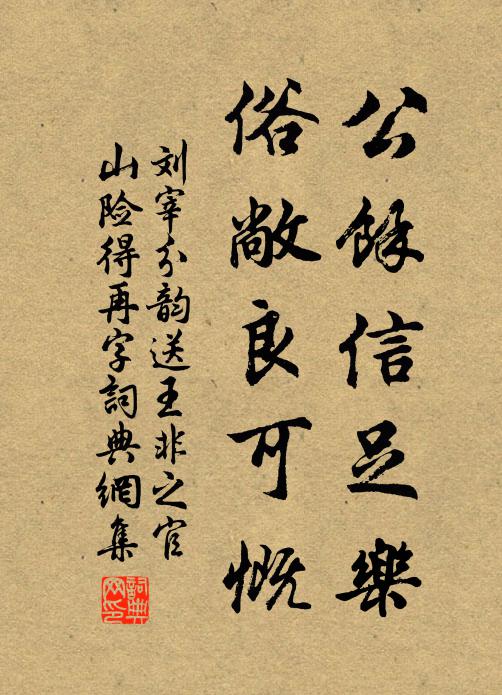 公餘信足樂
俗敞良可慨
刘宰分韵送王非之官
山险得再字詞典網集
詞典网印